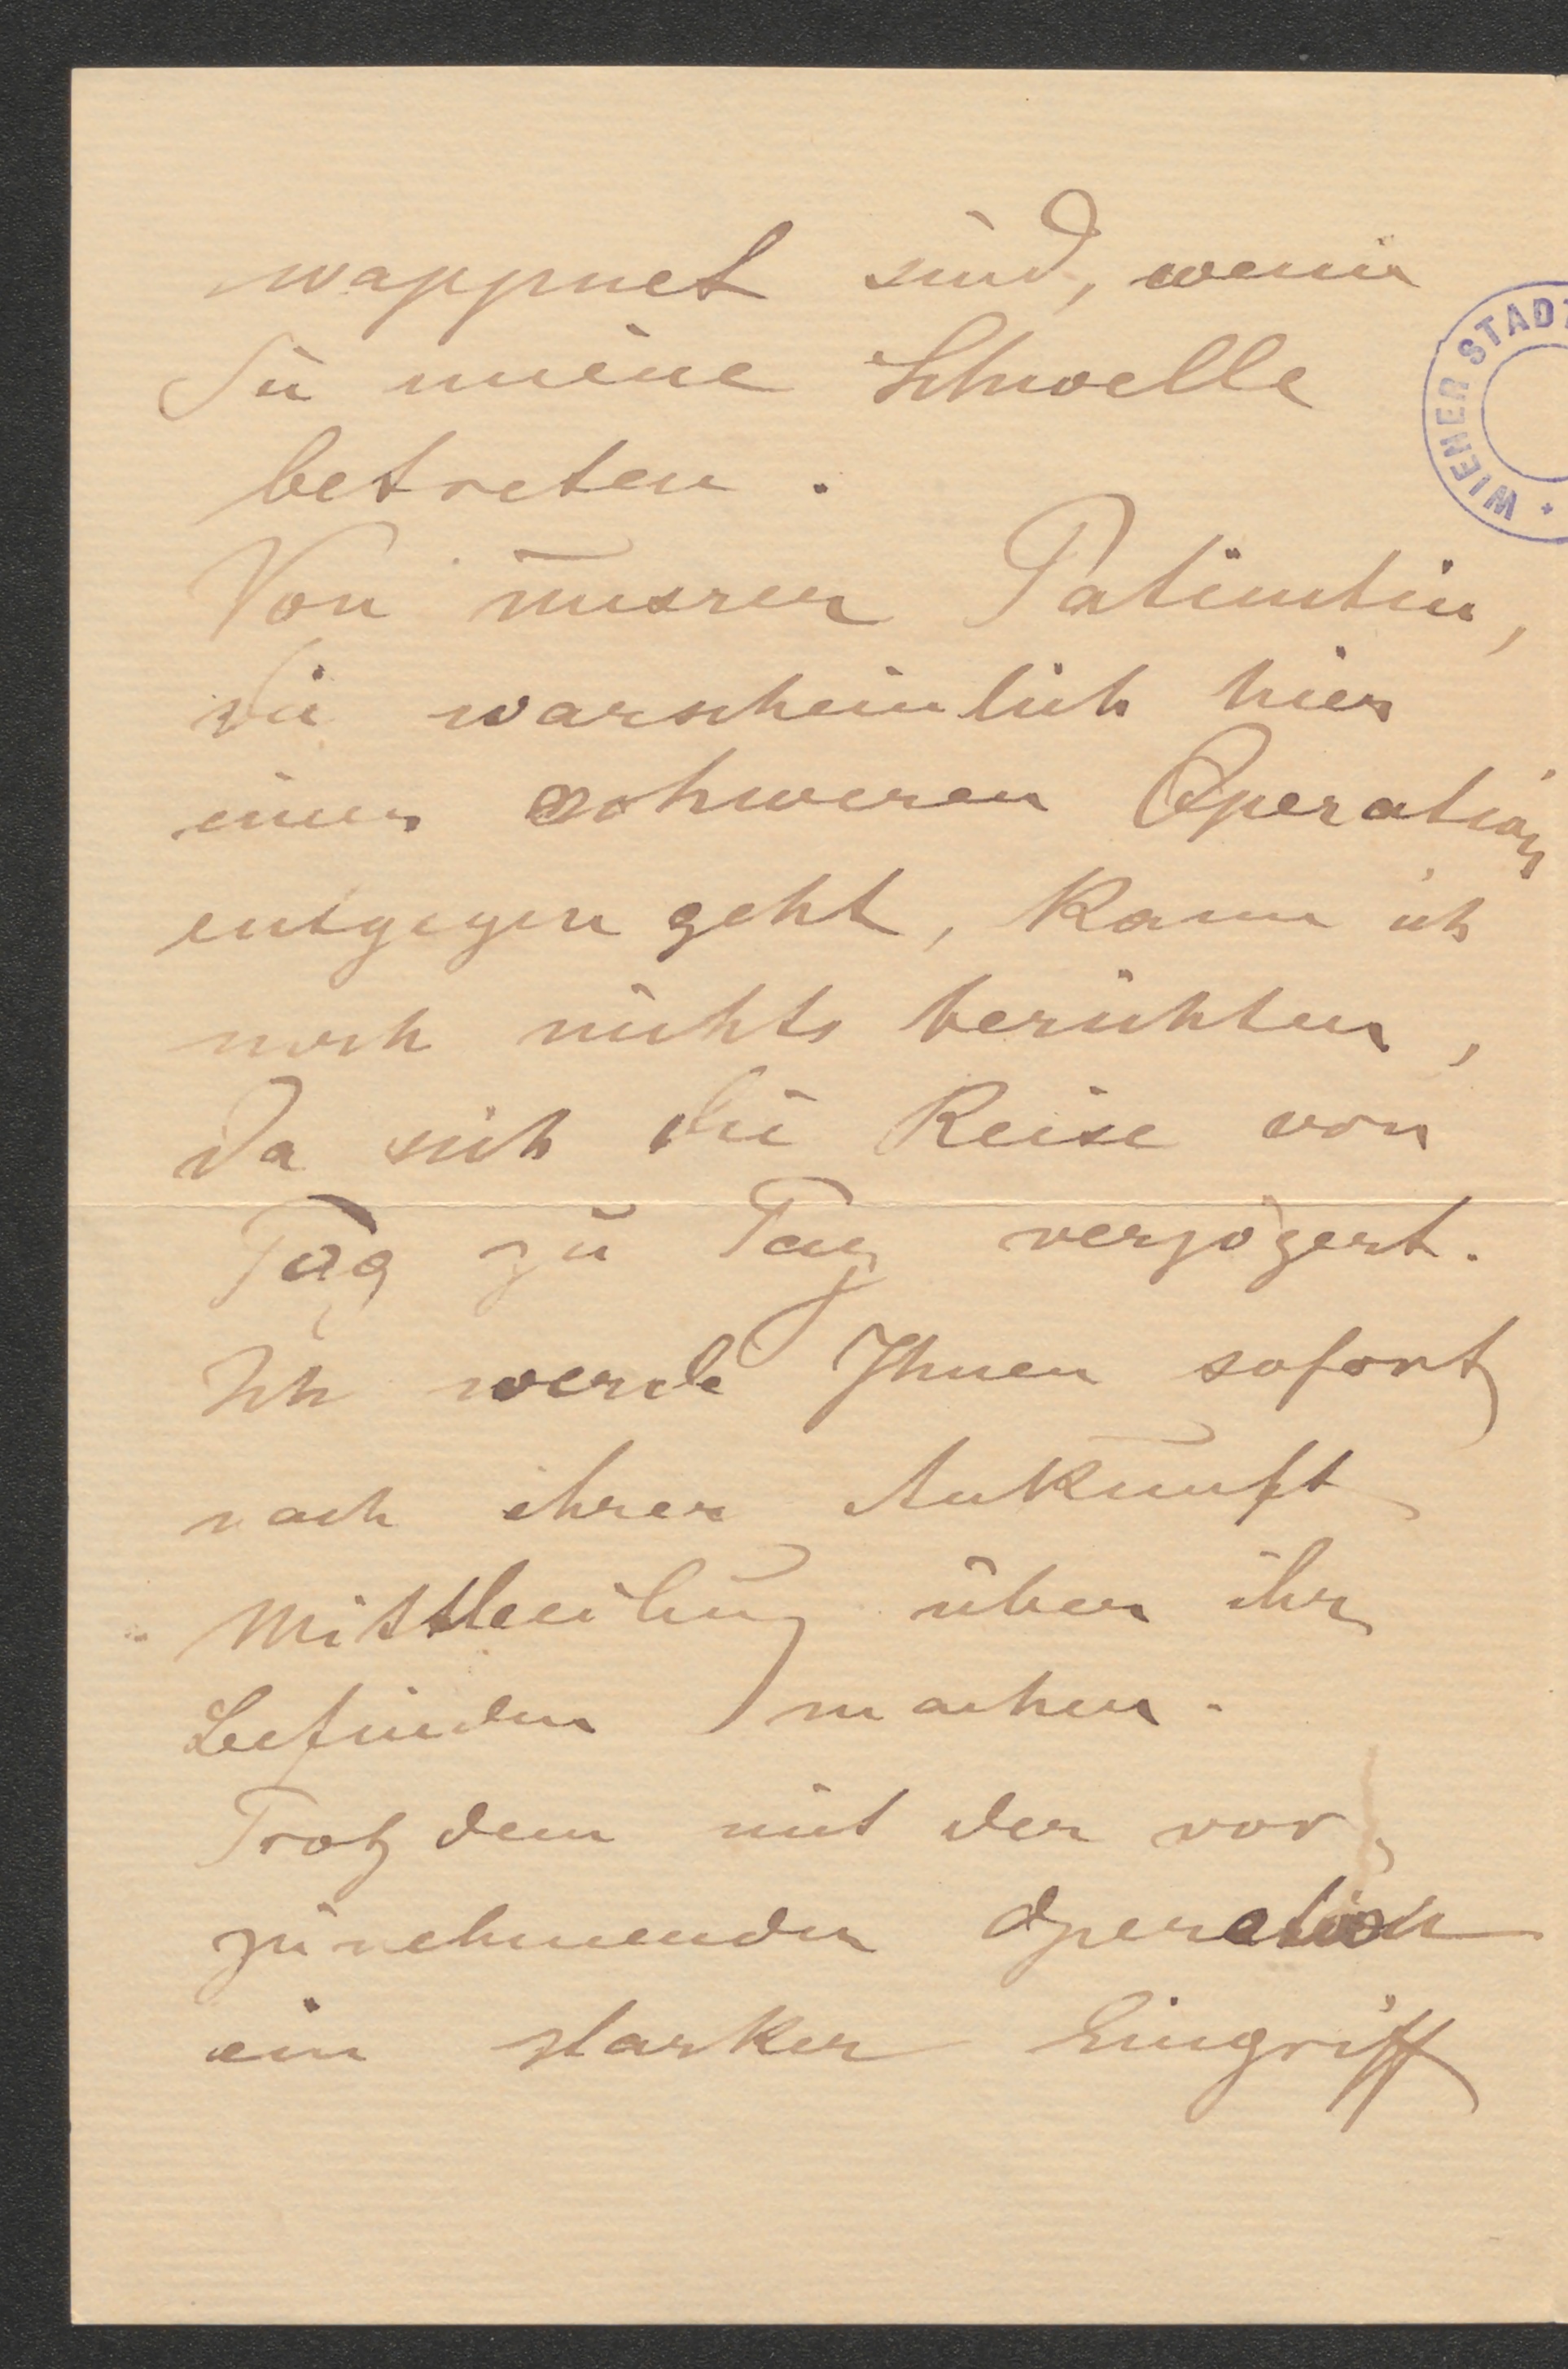 wappnet sind, wenn
Sie meine Schwelle
betreten.
Von unsrer Patientin,
die warscheinlich hier
einer schweren Operation
entgegen geht, kann ich
noch nichts berichten,
da sich die Reise von
Tag zu Tag verzögert.
Ich werde Ihnen sofort
nach ihrer Ankunft
Mittheilung über ihr
Befinden machen.
Trotzdem mit der vor
zunehmenden Operation
ein starker Eingriff
WIENER STADT